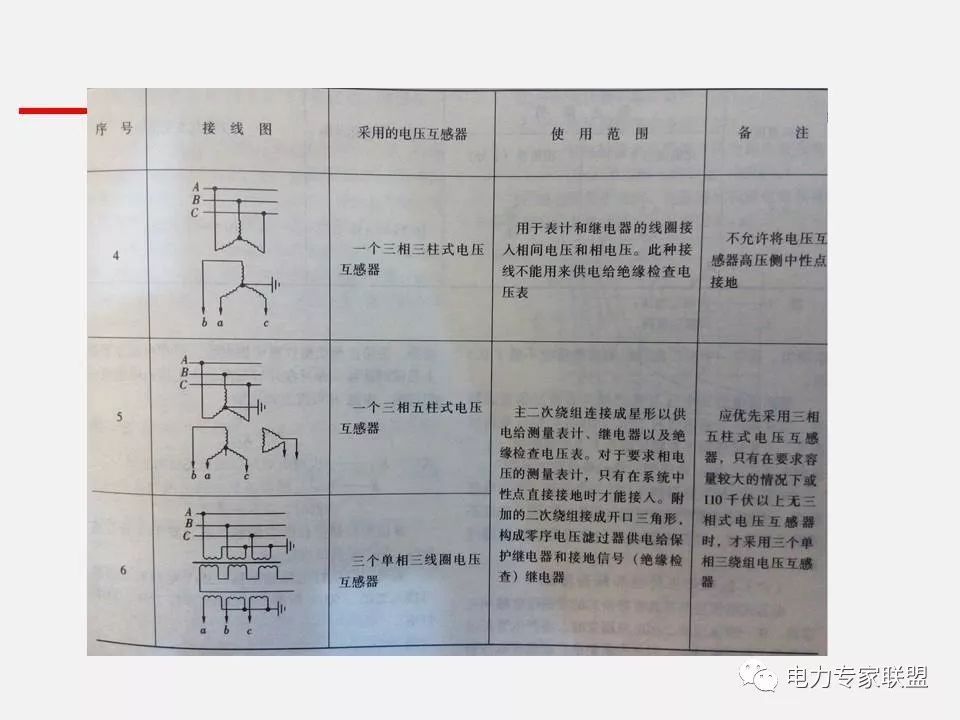 序 号
接 线 图
采用的电压互感器
使 用 范 围
备 注
4
A
B
C
b a c
一个三相三柱式电压
互感器
用于表计和继电器的线圈接
入相间电压和相电压。此种接
线不能用来供电给绝缘检查电
压表
不允许将电压互
感器高压侧中性点
接地
5
A
B
C
b a c
一个三相五柱式电压
互感器
主二次绕组连接成星形以供
电给测量表计、继电器以及绝
缘检查电压表。对于要求相电
压的测量表计，只有在系统中
性点直接接地时才能接入。附
加的二次绕组接成开口三角形，
构成零序电压滤过器供电给保
护继电器和接地信号（绝缘检
查）继电器
应优先采用三相
五柱式电压互感
器，只有在要求容
量较大的情况下或
110千伏以上无三
相式电压互感器
时，才采用三个单
相三绕组电压互感
器
6
A
B
C
a b c
三个单相三线圈电压
互感器
电力专家联盟